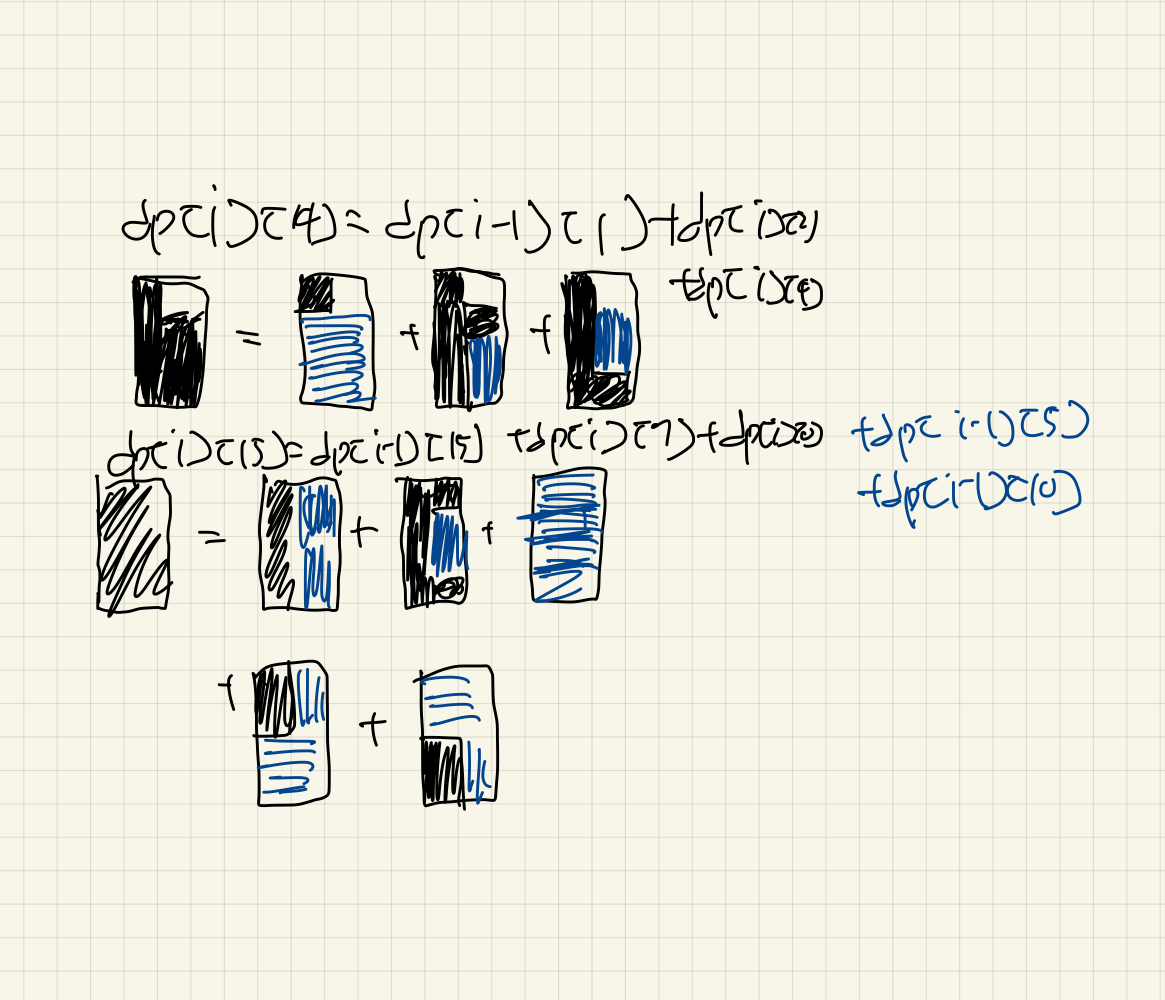 dp[i][4] = dp[i-1][1] + dp[i][2]
+ dp[i][9]
= + +
dp[i][5] = dp[i-1][5] + dp[i][7] + dp[i][0] + dp[i-1][5]
+ dp[i-1][0]
= + +
+ +